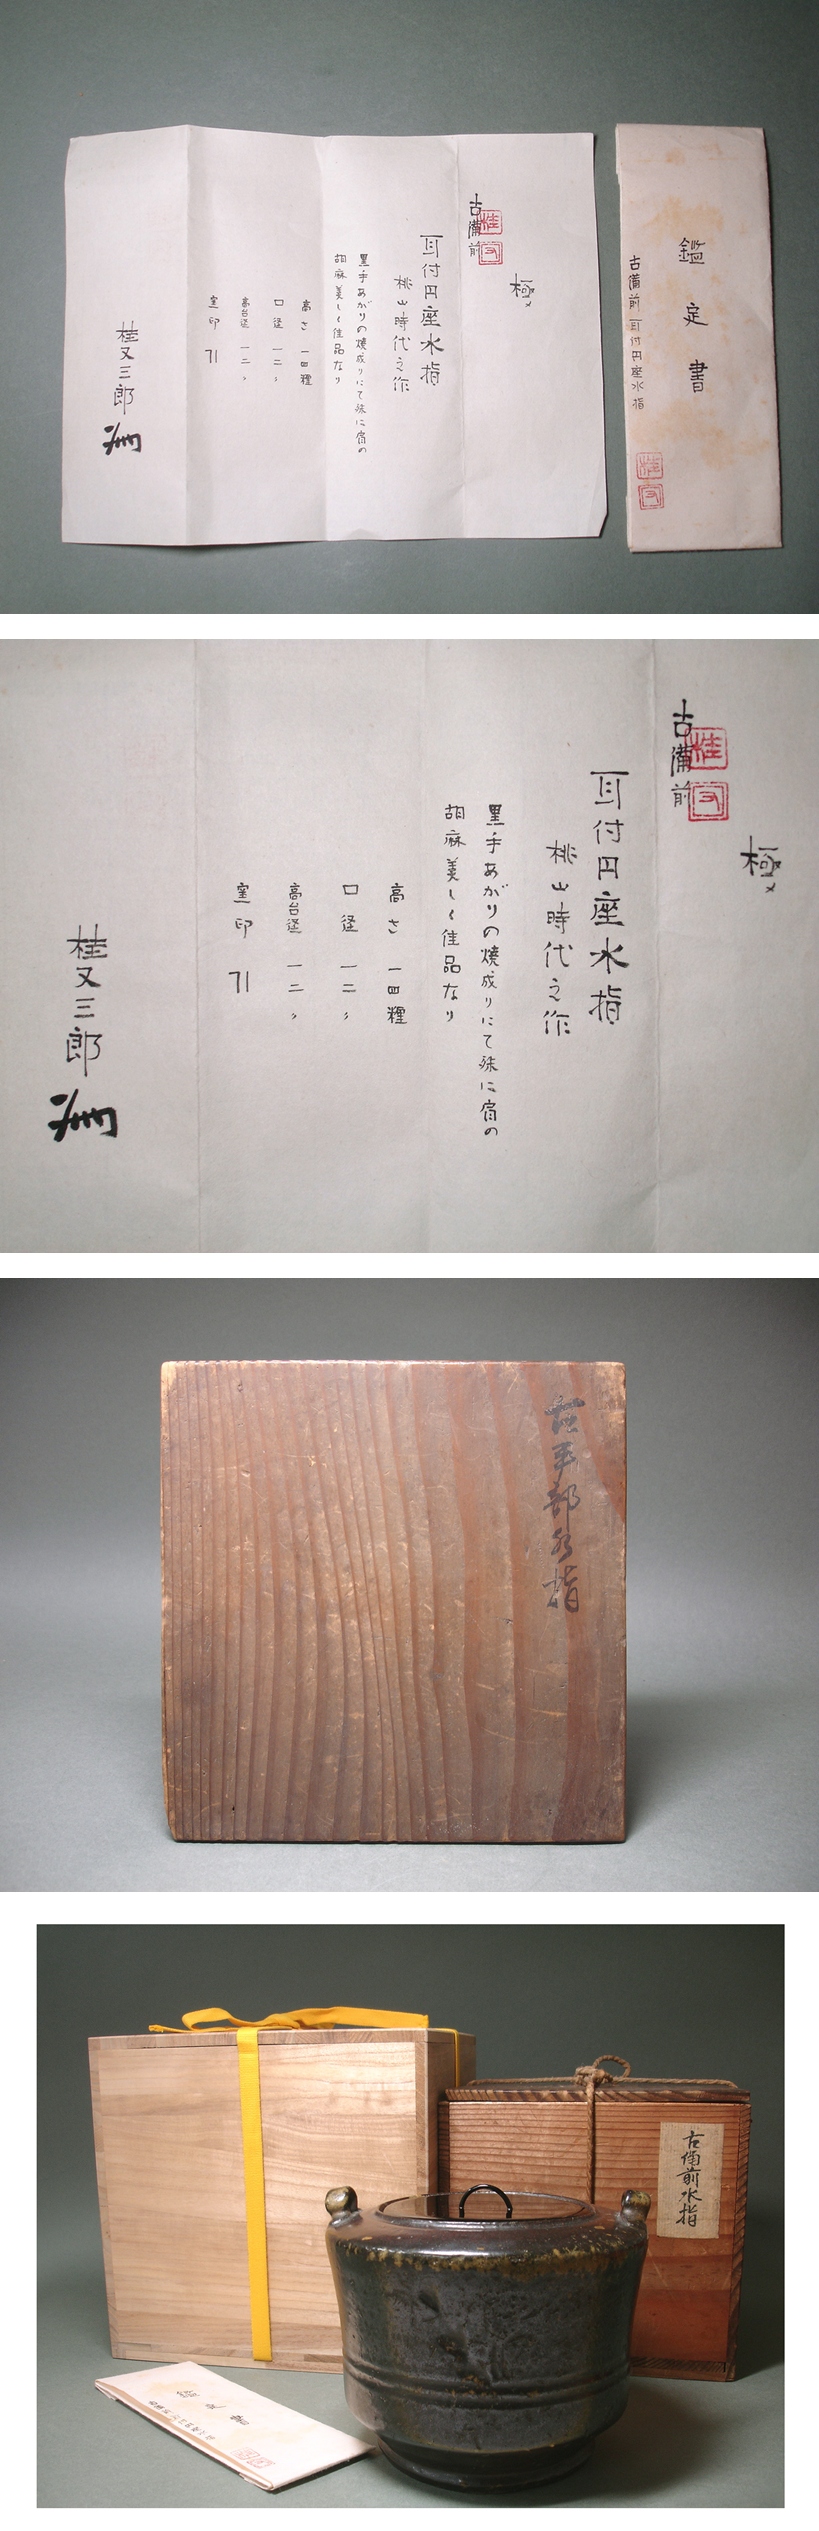 極メ
古備前
桂
又
耳付円座水指
桃山時代之作
黒手あがりの焼成りにて殊に肩の
胡麻美しく佳品なり
高さ 一四糎
口径 一二〃
高台径 一二〃
窯印
桂又三郎
鑑定書
古備前 耳付円座水指
桂
又
極メ
古備前
桂
又
耳付円座水指
桃山時代之作
黒手あがりの焼成りにて殊に肩の
胡麻美しく佳品なり
高さ 一四糎
口径 一二〃
高台径 一二〃
窯印
桂又三郎
水指
古備前水指
鑑定書